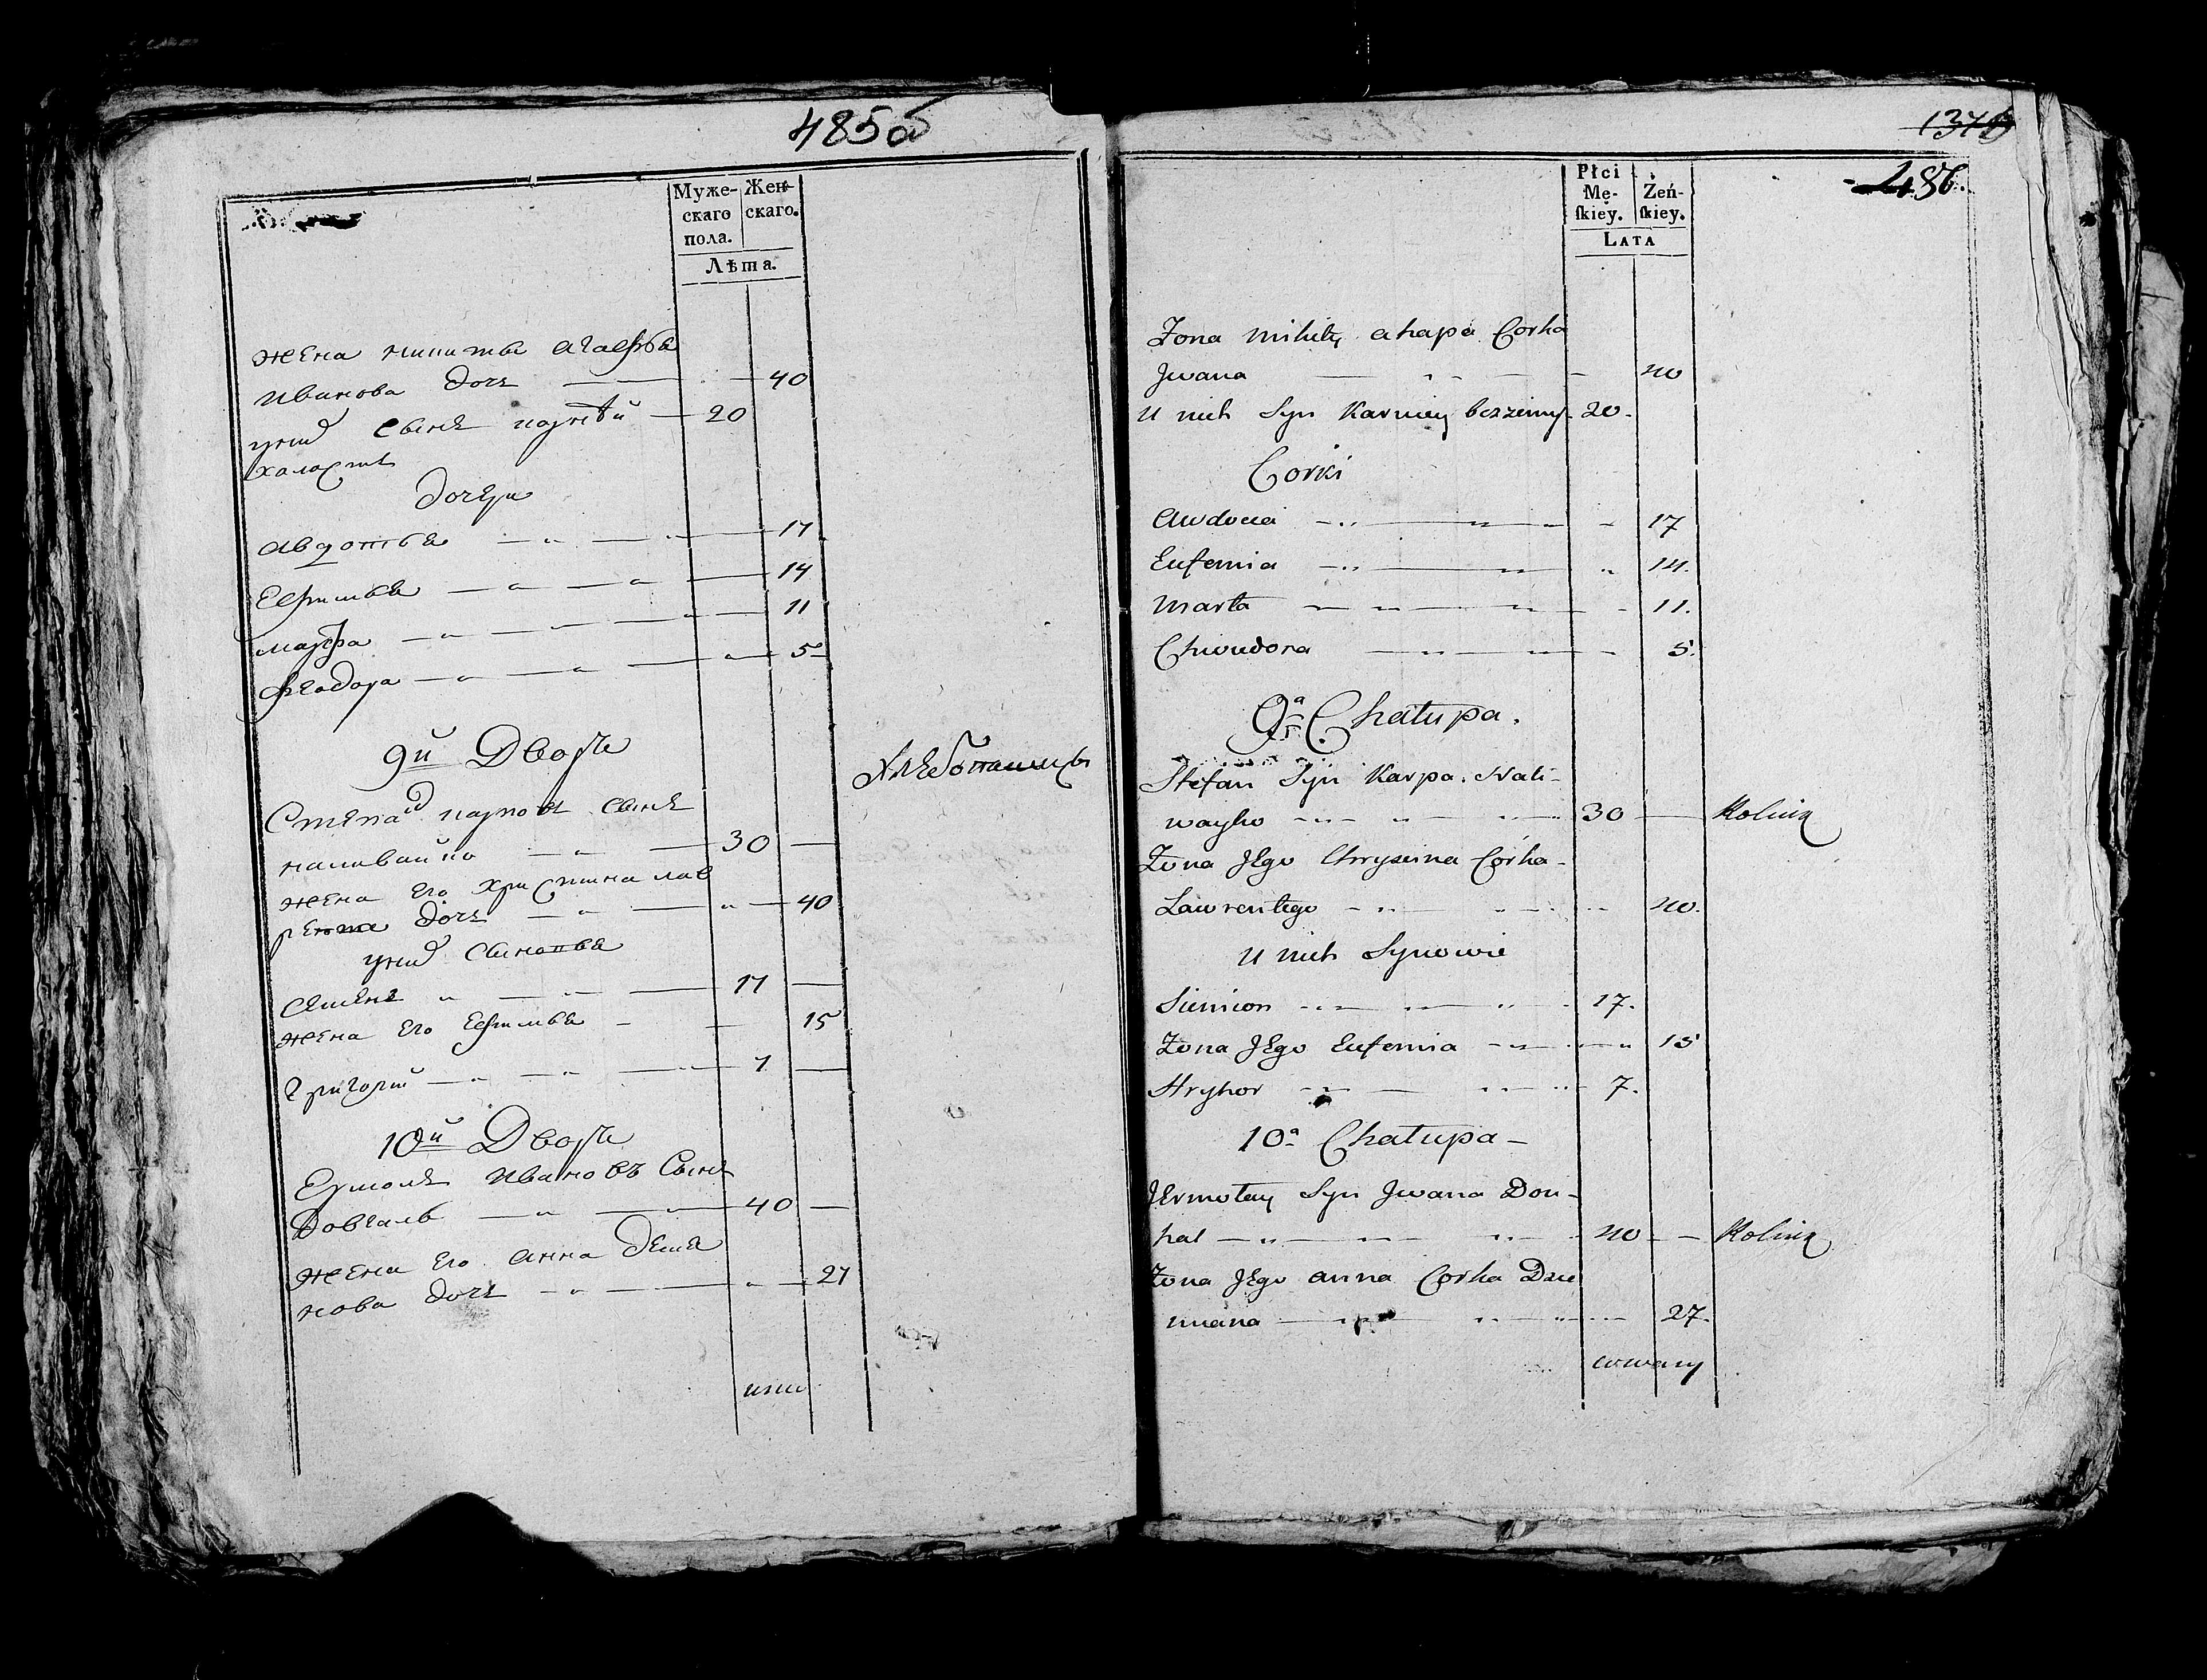 485об
Муже- Жен-
скаго скаго.
пола.
Лѣта.
жена никиты агафья
иванова дочь 40
уних сынъ карпѣй 20
холостъ
дочери
авдотья 17
Ефимья 14
марфа 11
феодора 5
9й Дворъ
Хлебопашцъ
Степанъ карповъ сынъ
наливайко 30
жена его христина лав
рента дочь 40
уних сыновья
семенъ 17
жена его Ефимья 15
григорий 7
10й Дворъ
Ермола Ивановъ Сынъ
Довгаль 40
жена его анна демя
нова дочь 27
1375
486.
Płci
Mę- Żeń-
skiey. skiey.
LATA
Żona Mikity ahapa Corka
Jwana 40
U nich Syn Karniey bezzenny 20
Corki
Awdocia 17
Eufemia 14.
Marta 11.
Chwedora 5.
9a Chałupa.
Stefan Syn Karpa Nali-
wayko 30 Rolnik
Żona Jego Chrystina Córka
Lawrentego 40.
U nich Synowie
Siemion 17.
Żona Jego Eufemia 15
Hryhor 7.
10a Chałupa
Jermołay Syn Jwana Dou-
hal 40 Rolnik
Żona Jego anna Corka Dze
miana 27.